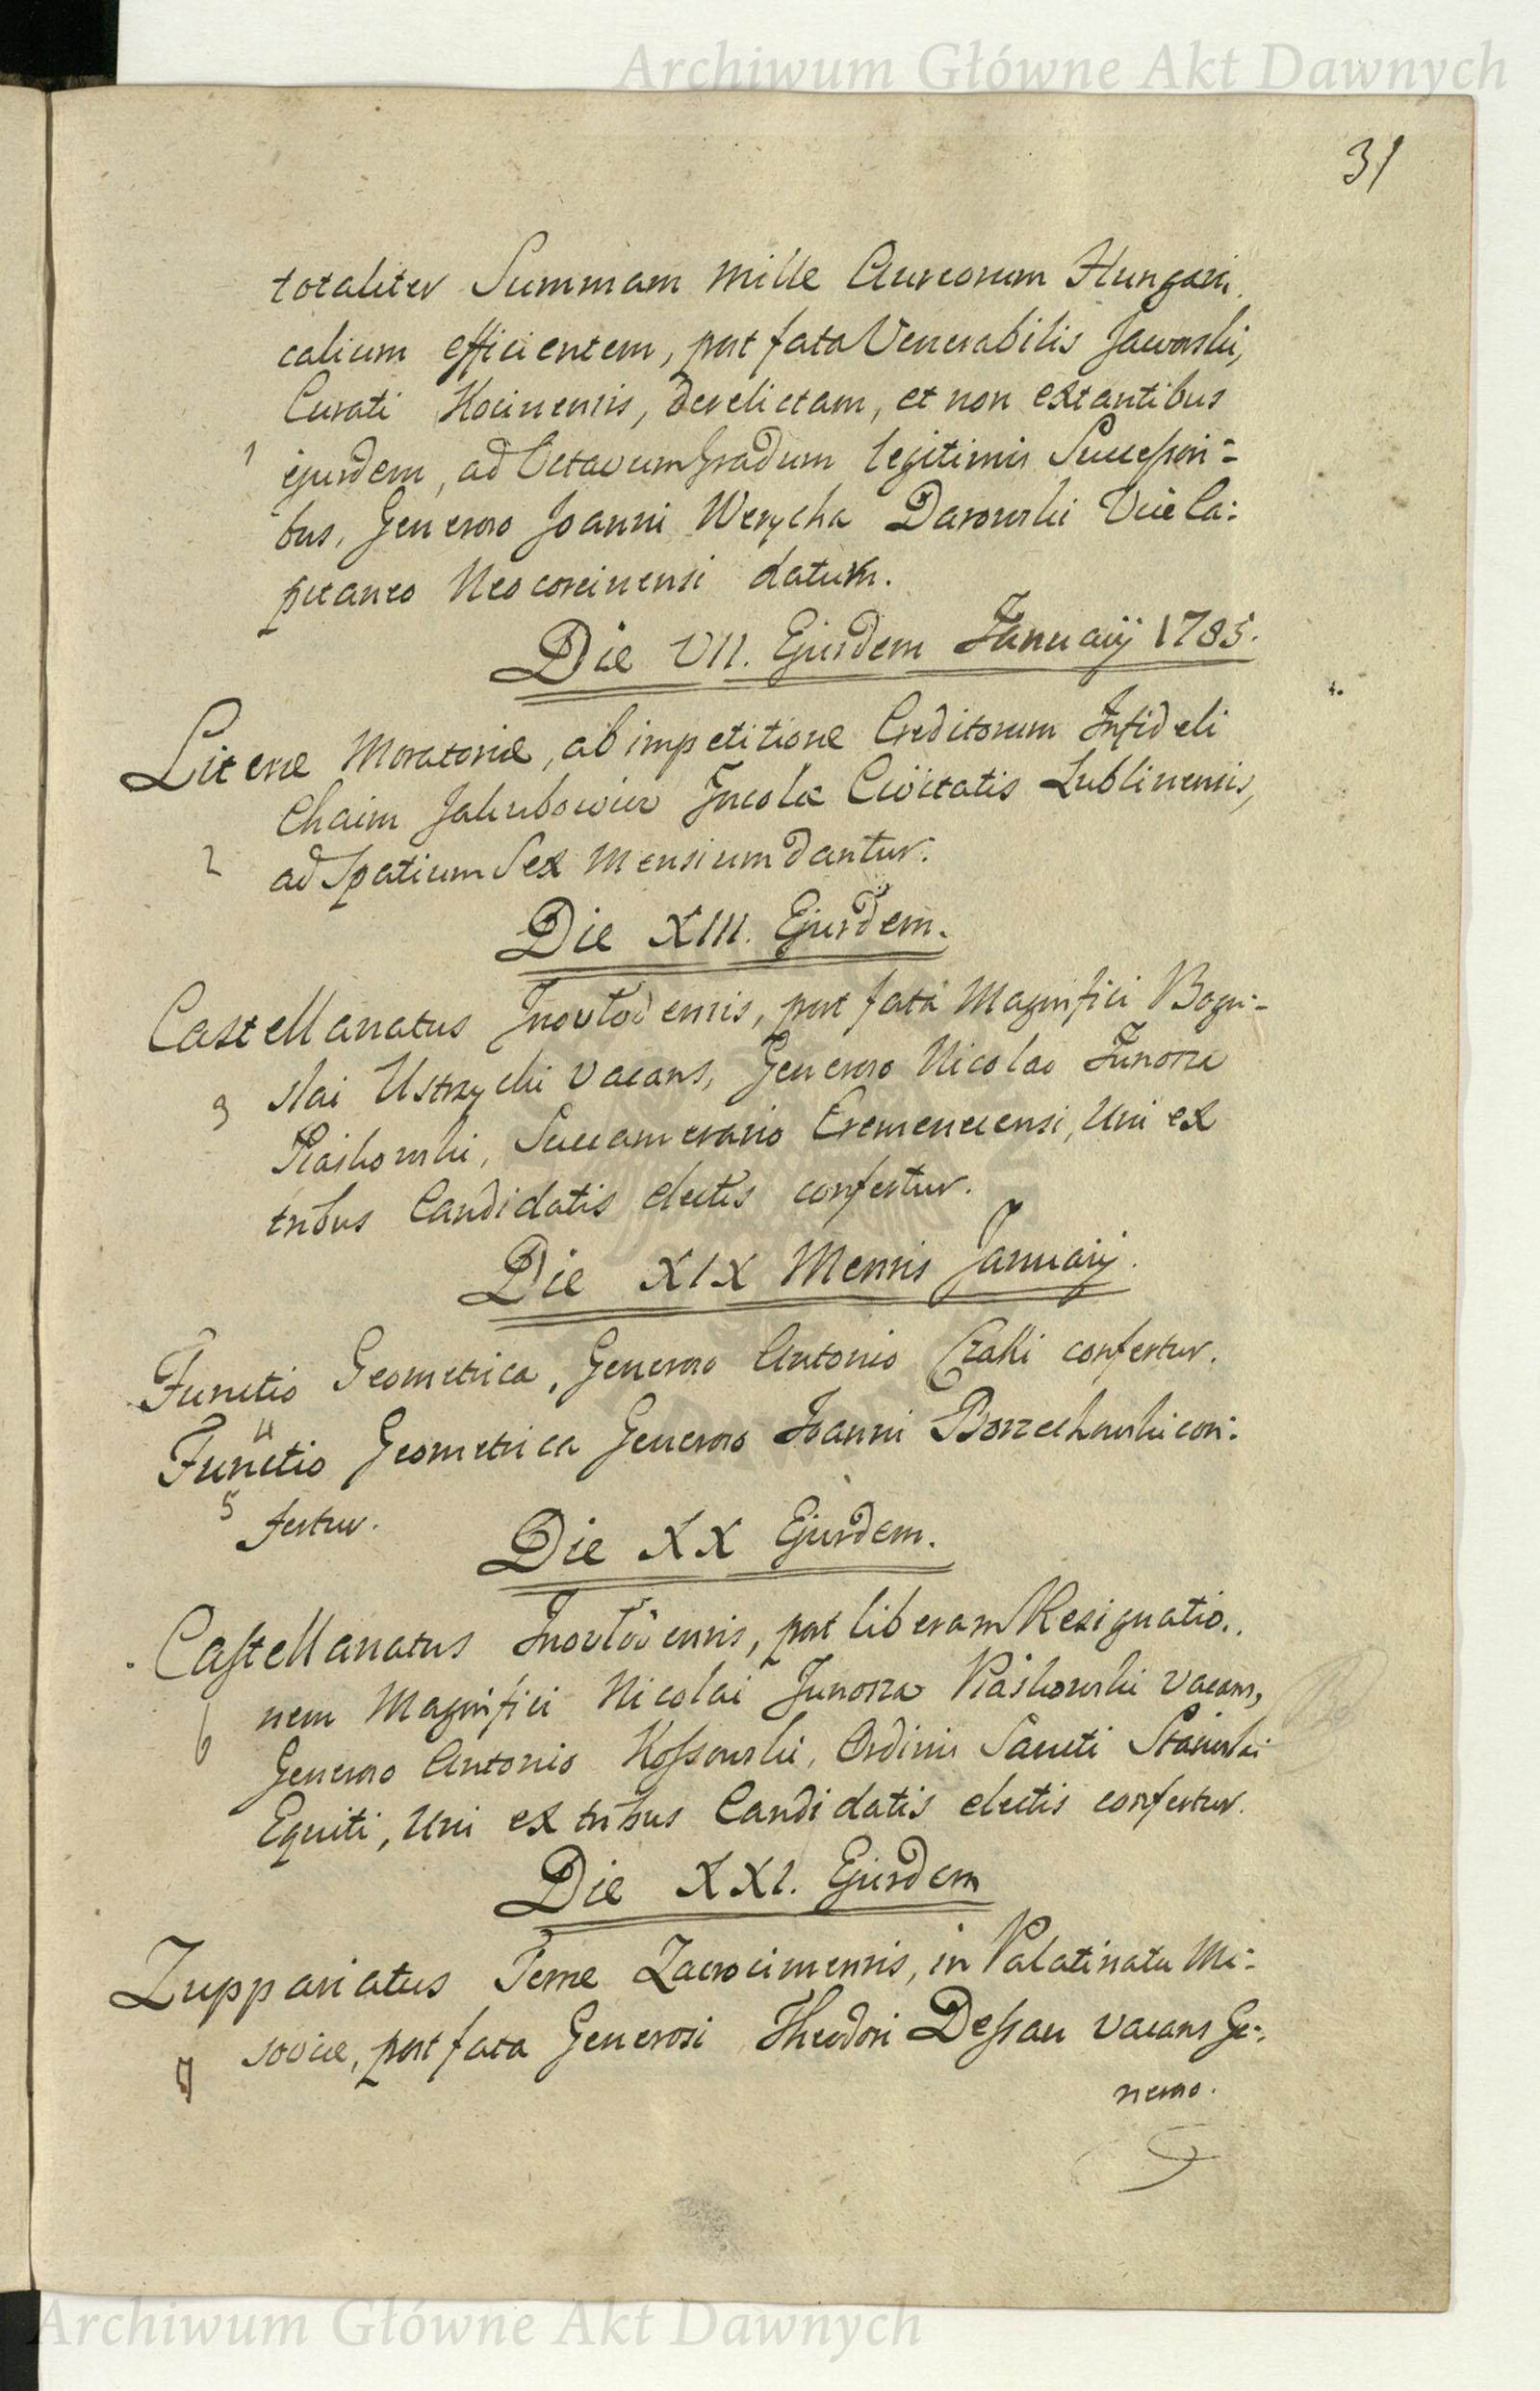 Archiwum Główne Akt Dawnych
31
totaliter Summam mille Aureorum Hungari.
calium efficientem, post fata Venerabilis Jaworski,
Curati Kocinensis, derelictam, et non extantibus
1 ejusdem, ad Octavum Gradum legitimis Successori=
bus, Generoso Joanni Werycha Darowski Vice Ca:
pitaneo Neocorcinensi datum.
Die VII. Ejusdem Januarij 1785.
Literæ Moratoriæ, ab impetitione Creditorum Infideli
Chaim Jakubowicz Incolæ Civitatis Lublinensis,
2 ad Spatium Sex Mensium dantur.
Die XIII. Ejusdem.
Castellanatus Inovlodensis, post fata Magnifici Bogu=
3 slai Ustrzycki vacans, Generoso Nicolao Junosza
Piaskowski, Succamerario Cremenecensi, Uni ex
tribus Candidatis electis confertur.
Die XIX Mensis Januarij.
Functio Geometrica, Generoso Antonio Czaki confertur.
4
Functio Geometrica Generoso Joanni Borzechowski con:
5 fertur.
Die XX Ejusdem.
Castellanatus Inovlodensis, post liberam Resignatio..
nem Magnifici Nicolai Junosza Piaskowski vacans,
6 Generoso Antonio Kossowski, Ordinis Sancti Stanislai
Equiti, Uni ex tribus Candidatis electis confertur.
Die XXI. Ejusdem
Zuppariatus Terræ Zacrocimensis, in Palatinatu Ma=
7 soviæ, post fata Generosi Theodori Dessau vacans Ge=
neroso.
Archiwum Główne Akt Dawnych